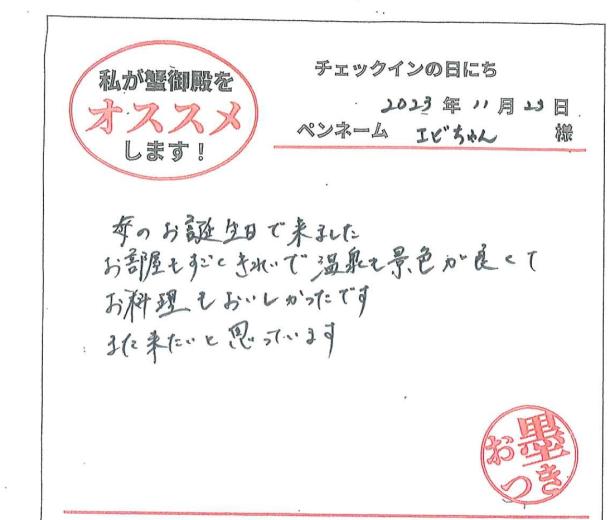 私が蟹御殿を
オススメ
します！
チェックインの日にち
2023年11月23日
ペンネーム エビちゃん 様
母のお誕生日で来ました
お部屋もすごくきれいで温泉も景色が良くて
お料理もおいしかったです
また来たいと思っています
お墨
つき